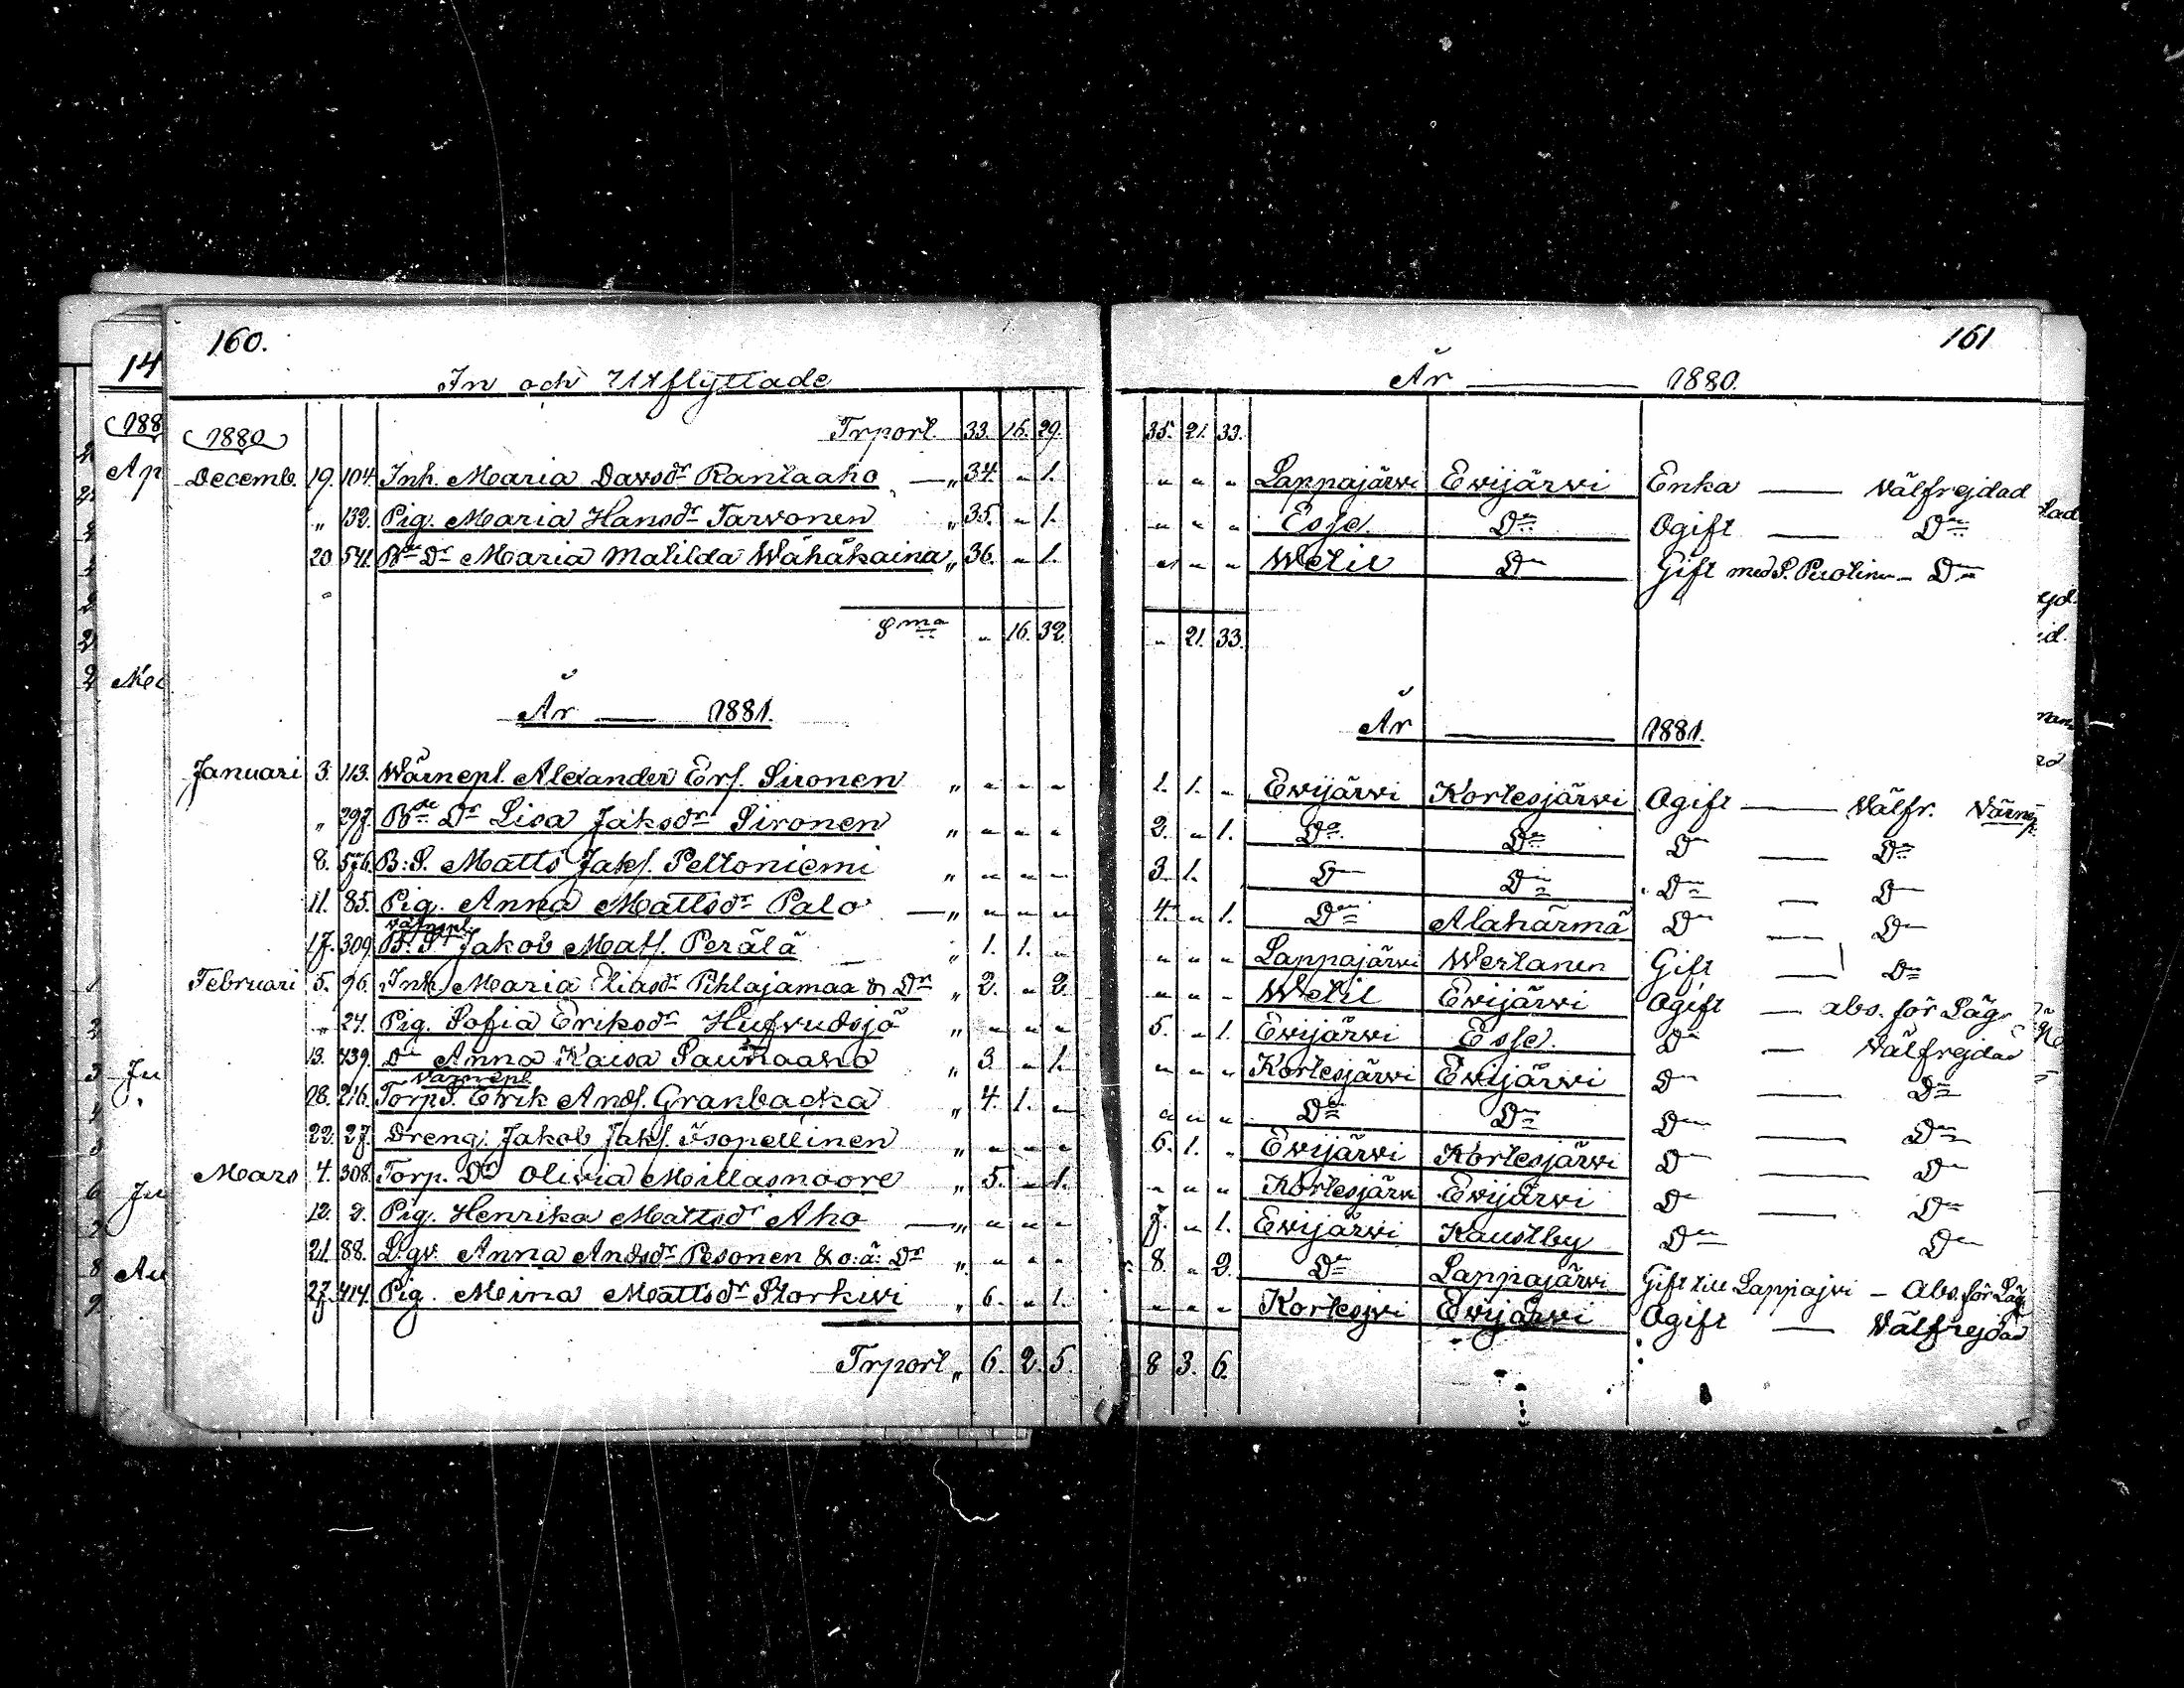 160.
In och Utflyttade
1880 Trport. 33. 16. 29.
Decemb. 19. 104. Inh. Maria Davsdr Rantaaho — „ 34. „ 1.
„ 132. Pig. Maria Hansdr Tarvonen „ 35. „ 1.
20 541. Bde Dr Maria Matilda Wähäkaina „ 36. „ 1.
Sma „ 16. 32.
År — 1881.
Januari 3. 113. Wärnepl. Alexander Ers. Sironen „ „ „ „
„ 297. Bde Dr Lisa Jaksdr Sironen „ „ „ „
8. 576. B: S. Matts Jaks. Peltoniemi „ „ „ „
11. 85. Pig. Anna Mattsdr Palo — „ „ „ „
Värnepl.
17. 309. B. S. Jakob Matts. Perälä „ 1. 1. „
Februari 5. 96. Inh. Maria Eliasdr Pihlajamaa & Dr „ 2. „ 2.
„ 24. Pig. Sofia Eriksdr Hufvudsjö „ „ „ „
13. 439. Dn Anna Kaisa Saunaaho „ 3. „ 1.
Värnepl.
28. 216. Torp. S. Erik Ands. Granbacka „ 4. 1. „
22. 27. Dreng: Jakob Jaks. Isopellinen „ „ „ „
Mars 4. 308. Torp. Dr Olivia Meillasnoore „ 5. „ 1.
12. 2. Pig. Henrika Mattsdr Aho — „ „ „ „
21. 88. Lgv. Anna Andsdr Pesonen & o: ä: Dr „ „ „ „
27. 414. Pig. Meina Mattsdr Storkivi „ 6. „ 1.
Trport „ 6. 2. 5.
161
År — 1880.
35. 21. 33.
„ „ „ Lappajärvi Evijärvi Enka — Välfrejdad
„ „ „ Esse Do Ogift — Do
„ „ „ Wetil Do Gift med S. — Do
„ 21. 33.
År — 1881.
1. 1. „ Evijärvi Kortesjärvi Ogift — Välfr. Värnep.
2. „ 1. Do Do Do — Do
3. 1. Do Do Do — Do
4. „ 1. Do Alahärmä Do — Do
„ „ „ Lappajärvi Wertanen Gift — Do
„ „ „ Wetil Evijärvi Ogift — abs. för Läg.
5. „ 1. Evijärvi Esse. Do — Välfrejdad
„ „ „ Kortesjärvi Evijärvi Do — Do
„ „ „ Do Do Do — Do
6. 1. „ Evijärvi Kortesjärvi Do — Do
„ „ „ Kortesjärvi Evijärvi Do — Do
7. „ 1. Evijärvi Kaustby Do Do
8. „ 2. Do Lappajärvi Gift till Lappajvi — Abs. för Läg.
„ „ „ Kortesjvi Evijärvi Ogift — Välfrejdad
8 3. 6.